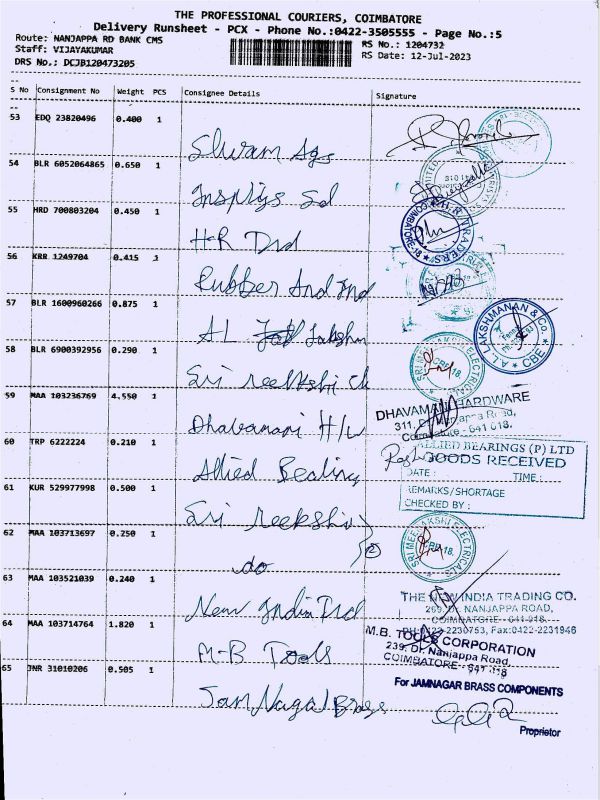 THE PROFESSIONAL COURIERS, COIMBATORE
Delivery Runsheet - PCX - Phone No.:0422-3505555 - Page No.:5
Route: NANJAPPA RD BANK CMS
RS No.: 1204732
Staff: VIJAYAKUMAR
RS Date: 12-Jul-2023
DRS No.: DCJB120473205
S No Consignment No Weight PCS Consignee Details Signature
53 EDQ 23820496 0.400 1
54 BLR 6052064865 0.650 1
55 HRD 700803204 0.450 1
H-R Trd
56 KRR 1249704 0.415 1
Rubber And Ind
57 BLR 1600960266 0.875 1
A.L. LAKSHMANAN & Co. CBE
58 BLR 6900392956 0.290 1
SRI MEENAKSHI ELECTRICALS CBE-18.
59 MAA 103236769 4.550 1
Dhavamani H/w
DHAVAMANI HARDWARE
311, Dr. Nanjappa Road,
Coimbatore - 641 018.
60 TRP 6222224 0.210 1
Allied Bearing
ALLIED BEARINGS (P) LTD
GOODS RECEIVED
DATE : TIME :
REMARKS/SHORTAGE
CHECKED BY :
61 KUR 529977998 0.500 1
62 MAA 103713697 0.250 1
do
SRI MEENAKSHI ELECTRICALS CBE-18.
63 MAA 103521039 0.240 1
New India Trd
THE NEW INDIA TRADING CO.
269, Dr. NANJAPPA ROAD,
COIMBATORE - 641 018.
PH:0422-2230753, Fax:0422-2231946
64 MAA 103714764 1.820 1
M-B Tools
M.B. TOOLS CORPORATION
239, Dr. Nanjappa Road,
COIMBATORE - 641 018
65 JNR 31010206 0.505 1
Jam Nagal Brass
For JAMNAGAR BRASS COMPONENTS
Proprietor